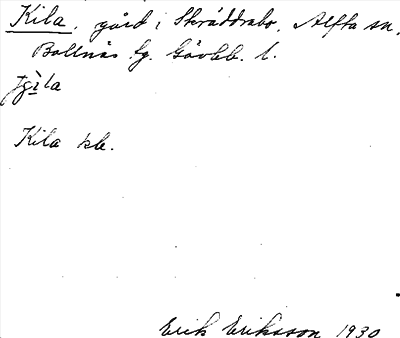 Kila, gård i Skräddrabo, Alfta sn,
Bollnäs tg. Gävleb. l.
Kila kb.
Erik Eriksson 1930